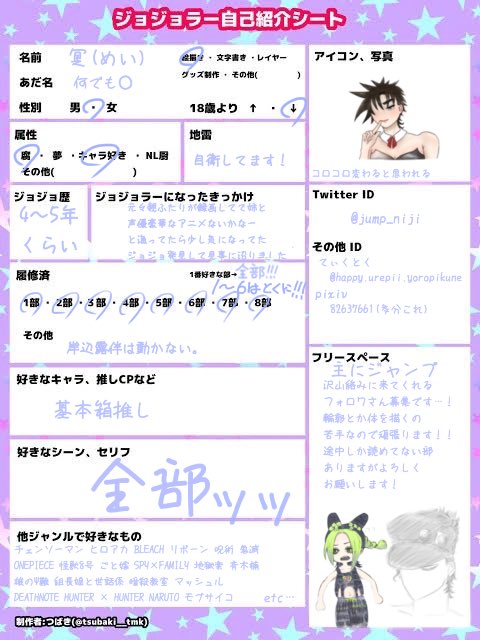 ジョジョラー自己紹介シート
名前 冥(めい)
絵描き ・ 文字書き ・レイヤー
グッズ制作 ・ その他( )
あだ名 何でも〇
性別 男 ・ 女
18歳より ↑ ・ ↓
アイコン、写真
コロコロ変わると思われる
属性
腐 ・ 夢 ・キャラ好き ・ NL厨
その他( )
地雷
自衛してます!
ジョジョ歴
4〜5年
くらい
ジョジョラーになったきっかけ
元々親ふたりが録画してて姉と
声優豪華なアニメないかなー
と漁ってたら少し気になってた
ジョジョ発見して見事に沼りました
Twitter ID
@jump_niji
その他 ID
てぃくとく
@happy.urepii.yoropikune
pixiv
82637661(多分これ)
履修済
1番好きな部→全部!!!
1〜6はとくに!!!
1部 ・ 2部 ・ 3部 ・ 4部 ・ 5部 ・ 6部 ・ 7部 ・ 8部
その他
岸辺露伴は動かない。
好きなキャラ、推しCPなど
基本箱推し
好きなシーン、セリフ
全部ッッ
フリースペース
主にジャンプ
沢山絡みに来てくれる
フォロワさん募集です…!
輪郭とか体を描くの
苦手なので頑張ります!!
途中しか読めてない部
ありますがよろしく
お願いします!
他ジャンルで好きなもの
チェンソーマン ヒロアカ BLEACH リボーン 呪術 鬼滅
ONEPIECE 怪獣8号 ごと嫁 SPY×FAMILY 地獄楽 青木橋
組長娘と世話係 暗殺教室 マッシュル
DEATHNOTE HUNTER × HUNTER NARUTO モブサイコ etc…
制作者:つばき(@tsubaki__tmk)